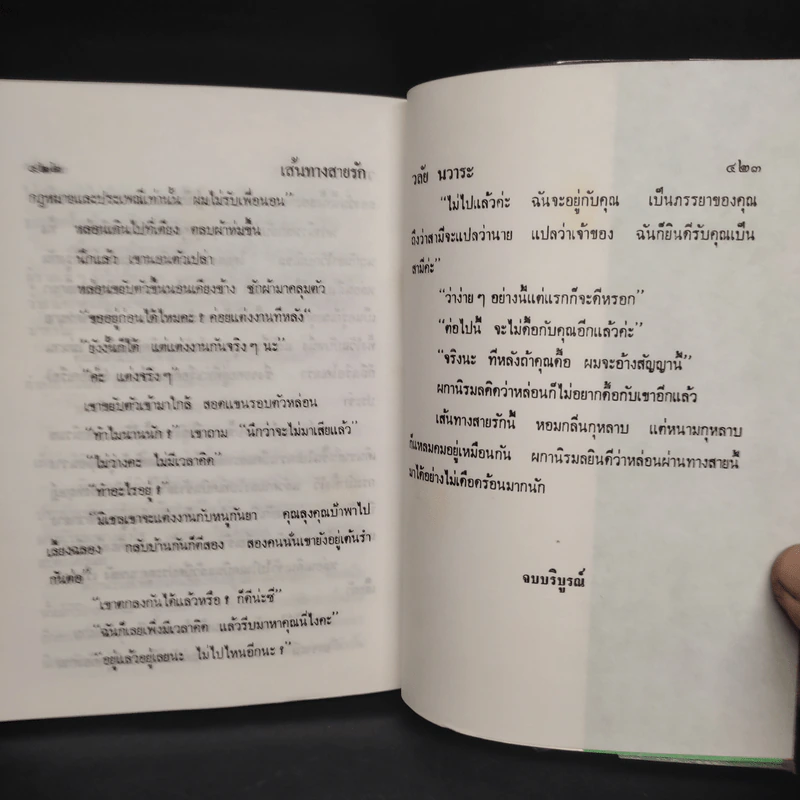 ๔๒๒ เส้นทางสายรัก
กฎหมายและประเพณีเท่านั้น ผมไม่รับเพื่อนอน”
หล่อนเดินไปที่เตียง ตลบผ้าห่มขึ้น
นึกแล้ว เขานอนตัวเปล่า
หล่อนขยับตัวขึ้นนอนเคียงข้าง ชักผ้ามาคลุมตัว
“ขออยู่ก่อนได้ไหมคะ ? ค่อยแต่งงานทีหลัง”
“ยังงั้นก็ได้ แต่แต่งงานกันจริง ๆ นะ”
“ค่ะ แต่งจริง ๆ”
เขาขยับตัวเข้ามาใกล้ สอดแขนรอบตัวหล่อน
“ทำไมนานนัก ?” เขาถาม “นึกว่าจะไม่มาเสียแล้ว”
“ไม่ว่างคะ ไม่มีเวลาคิด”
“ทำอะไรอยู่ ?”
“มิเชลเขาจะแต่งงานกับหนูกันยา คุณลุงคุณป้าพาไป
เลี้ยงฉลอง กลับบ้านกันก็ตีสอง สองคนนั่นเขายังอยู่เต้นรำ
กันต่อ”
“เขาตกลงกันได้แล้วหรือ ? ก็ดีน่ะซี”
“ฉันก็เลยเพิ่งมีเวลาคิด แล้วรีบมาหาคุณนี่ไงคะ”
“อยู่แล้วอยู่เลยนะ ไม่ไปไหนอีกนะ ?”
วลัย นวาระ ๔๒๓
“ไม่ไปแล้วค่ะ ฉันจะอยู่กับคุณ เป็นภรรยาของคุณ
ถึงว่าสามีจะแปลว่านาย แปลว่าเจ้าของ ฉันก็ยินดีรับคุณเป็น
สามีค่ะ”
“ว่าง่าย ๆ อย่างนี้แต่แรกก็จะดีหรอก”
“ต่อไปนี้ จะไม่ดื้อกับคุณอีกแล้วค่ะ”
“จริงนะ ทีหลังถ้าคุณดื้อ ผมจะอ้างสัญญานี้”
ผกานิรมลคิดว่าหล่อนก็ไม่อยากดื้อกับเขาอีกแล้ว
เส้นทางสายรักนี้ หอมกลิ่นกุหลาบ แต่หนามกุหลาบ
ก็แหลมคมอยู่เหมือนกัน ผกานิรมลยินดีว่าหล่อนผ่านทางสายนี้
มาได้อย่างไม่เดือดร้อนมากนัก
จบบริบูรณ์